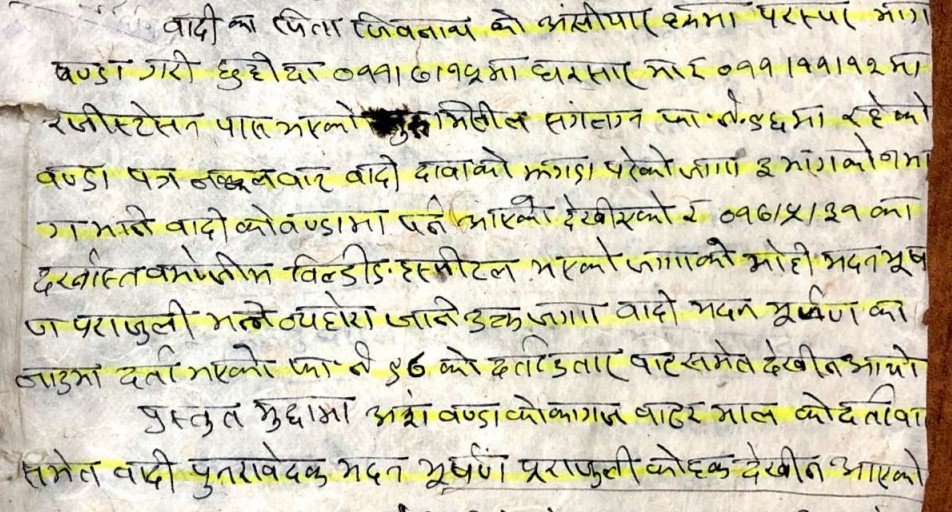 वादी का पिता जिवनाथ को अंसीयार हरुमा परस्पर भाग
वण्डा गरी छुट्टी दा ०११।७।१५मा घरसार भई ०११।११।१२ मा
रजीस्टेसन पास भएको मिसील संगलग्न फा.नं. ५६मा रहेको
वण्डा पत्र नक्कलवाट वादी दावाको झगडा परेको जग्गा ३ भागको
ग भन्ने वादी को वण्डामा पर्न आएको देखीएको र ०१७।५।३१ का
दरखास्त वमोजीम विल्डीङ हस्पीटल भएको जग्गाको मोही मदन भूष
ण पराजुली भन्ने व्यहोरा जाने उक्त जग्गा वादी मदन भूर्षण का
नाउमा दर्ता भएको फा नं ५७ को दर्ता उतार वाट समेत देखीन आयो
प्रस्तुत मुद्दामा अंश वण्डा को कागज वाट र माल को दर्तावाट
समेत वादी पुनरावेदक मदन भूर्षण पराजुली को हक देखीन आएको